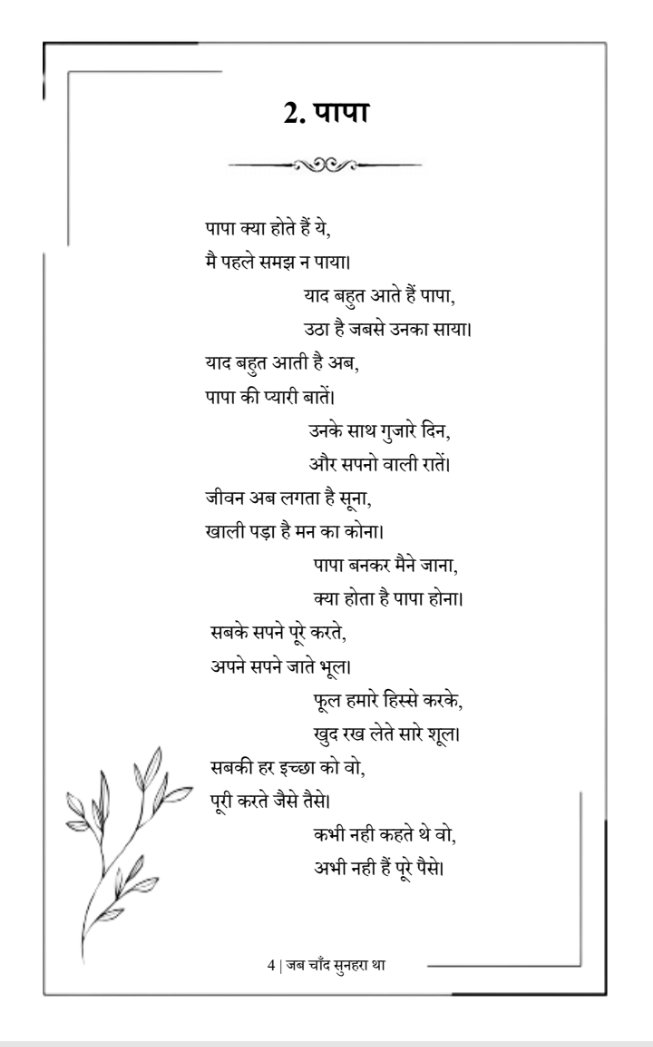 2. पापा
पापा क्या होते हैं ये,
मै पहले समझ न पाया।
याद बहुत आते हैं पापा,
उठा है जबसे उनका साया।
याद बहुत आती है अब,
पापा की प्यारी बातें।
उनके साथ गुजारे दिन,
और सपनो वाली रातें।
जीवन अब लगता है सूना,
खाली पड़ा है मन का कोना।
पापा बनकर मैने जाना,
क्या होता है पापा होना।
सबके सपने पूरे करते,
अपने सपने जाते भूल।
फूल हमारे हिस्से करके,
खुद रख लेते सारे शूल।
सबकी हर इच्छा को वो,
पूरी करते जैसे तैसे।
कभी नही कहते थे वो,
अभी नही हैं पूरे पैसे।
4 | जब चाँद सुनहरा था